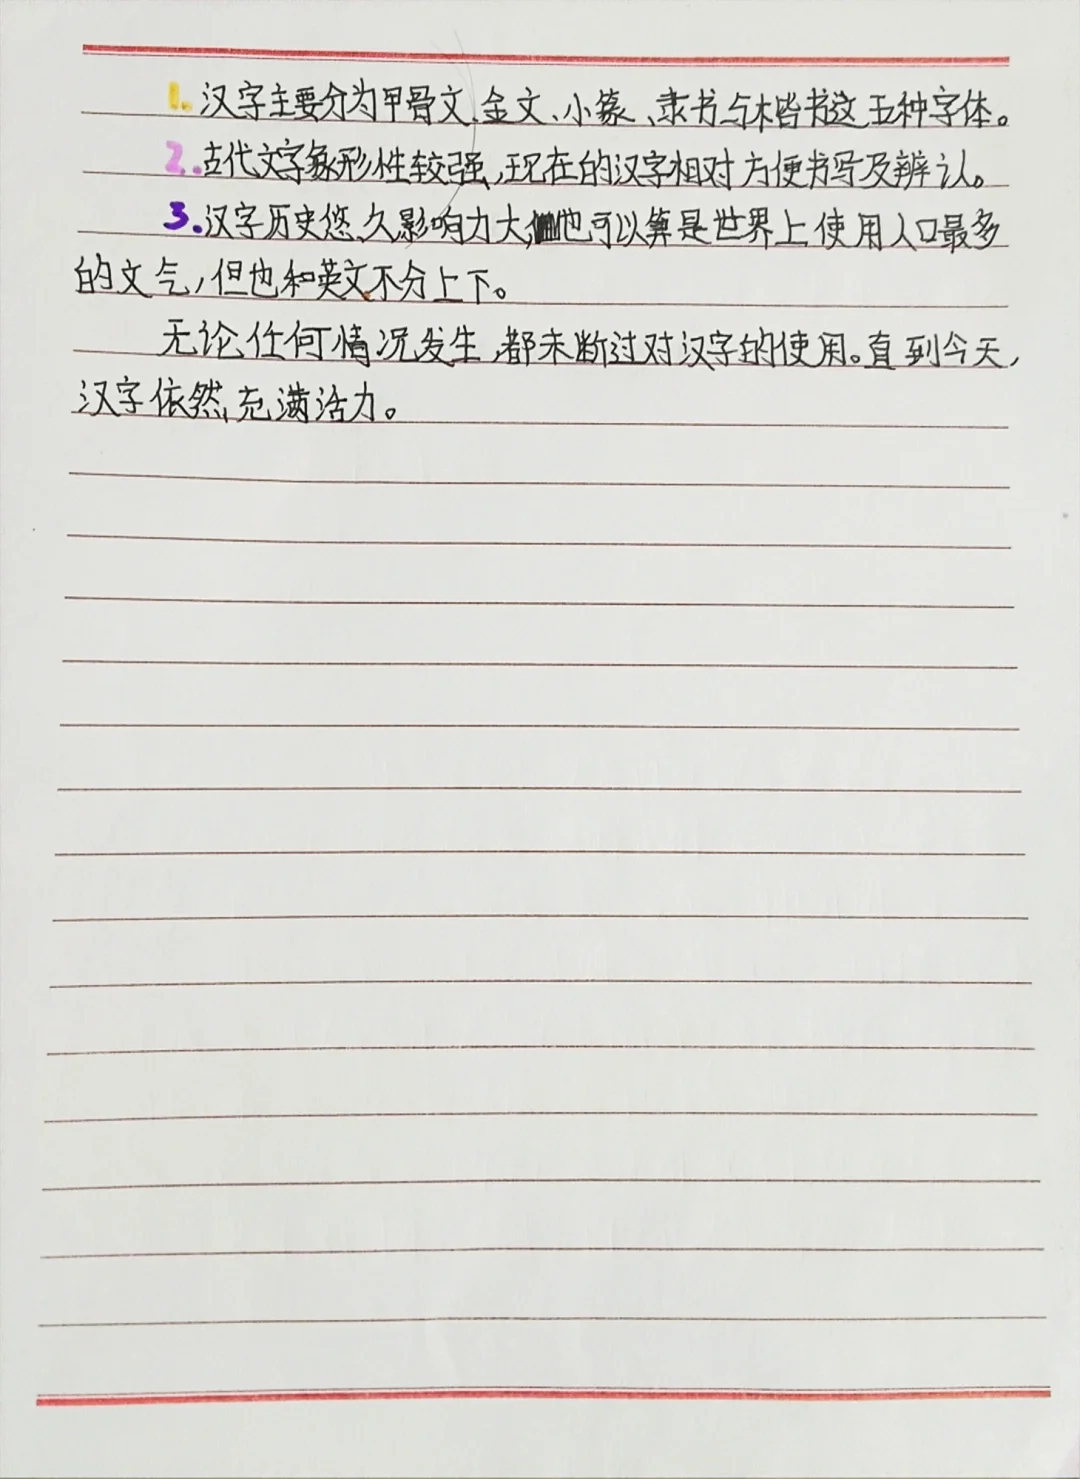 1.汉字主要分为甲骨文、金文、小篆、隶书与楷书这五种字体。
2.古代文字象形性较强,现在的汉字相对方便书写及辨认。
3.汉字历史悠久影响力大,他可以算是世界上使用人口最多
的文气,但也和英文不分上下。
无论任何情况发生,都未断过对汉字的使用。直到今天,
汉字依然充满活力。